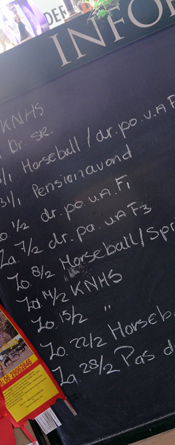 INFO
KNHS
Dr. sp.
/1 Horseball / dr. po. u.A.F
31/1 Pensionavond
Zo 1/2 dr. po u.A. F1
Za 7/2 dr. pa. u.A F3
Zo. 8/2 Horseball/Spr
Za 14/2 KNHS
Zo. 15/2 "
Zo. 22/2 Horseb.
Za. 28/2 Pas d